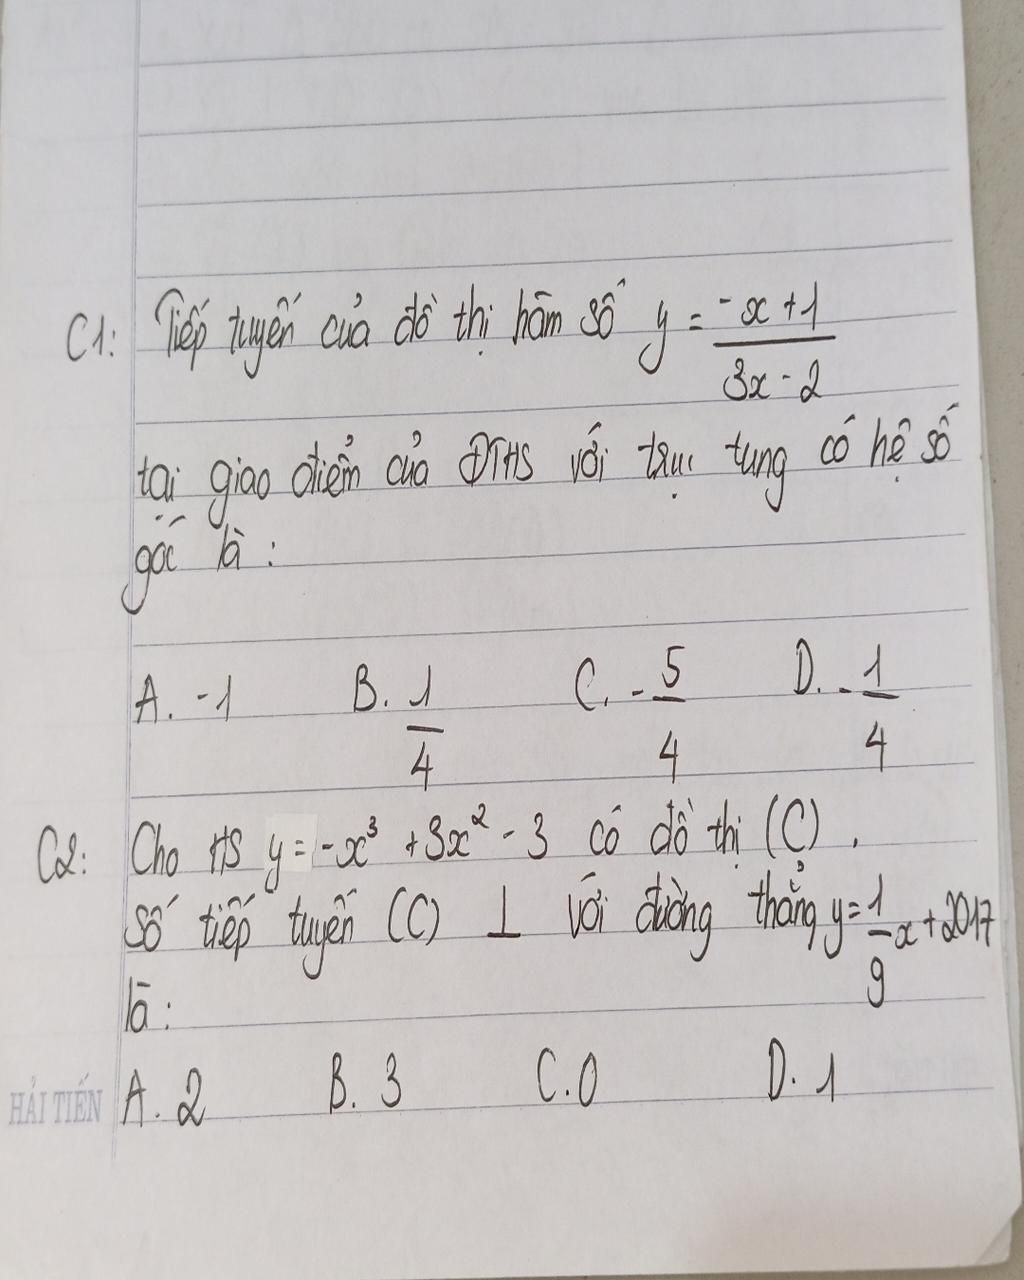 C1: Tiếp tuyến của đồ thị hàm số y = \frac{-x+1}{3x-2}
tại giao điểm của ĐTHS với trục tung có hệ số
góc là :
A. -1 B. \frac{1}{4} C. -\frac{5}{4} D. -\frac{1}{4}
C2: Cho HS y = -x³ + 3x² - 3 có đồ thị (C) .
Số tiếp tuyến (C) ⊥ với đường thẳng y = \frac{1}{9}x + 2017
là :
A. 2 B. 3 C. 0 D. 1
HẢI TIẾN